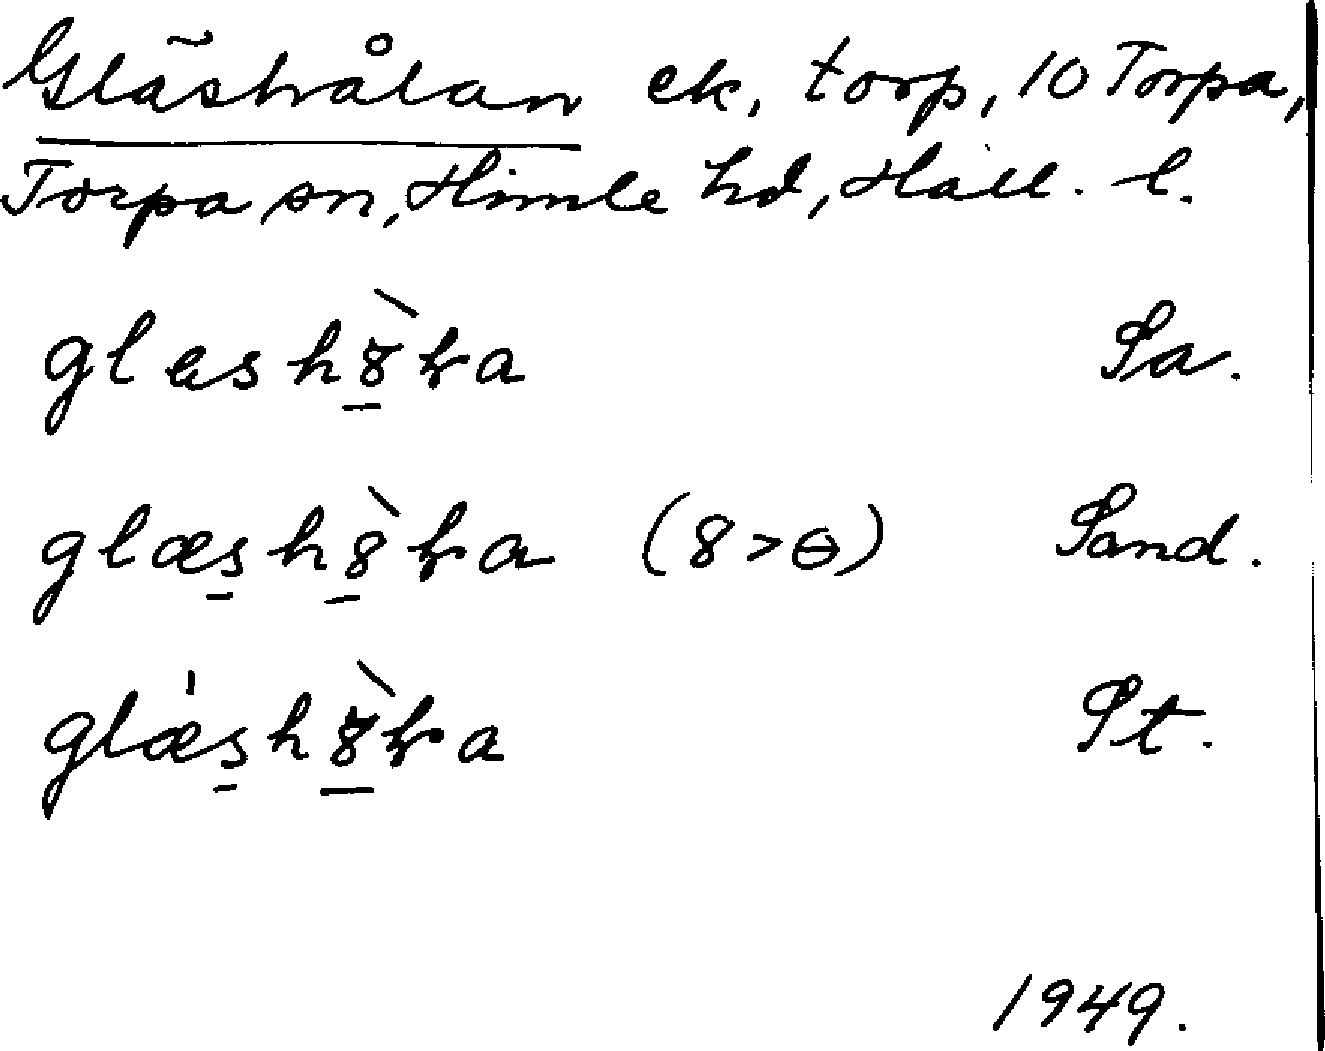 Gläshålan ek, torp, 10 Torpa,
Torpa sn, Himle hd, Hall. l.
glæshȣ̀ɫa Sa.
glæsh8̀ɫa (8>ɵ) Sand.
glǽsh8̀ɫa St.
1949.